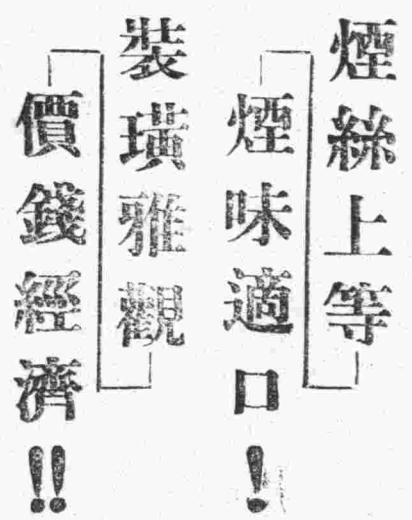 煙絲上等
煙味適口！
裝璜雅觀
價錢經濟！！